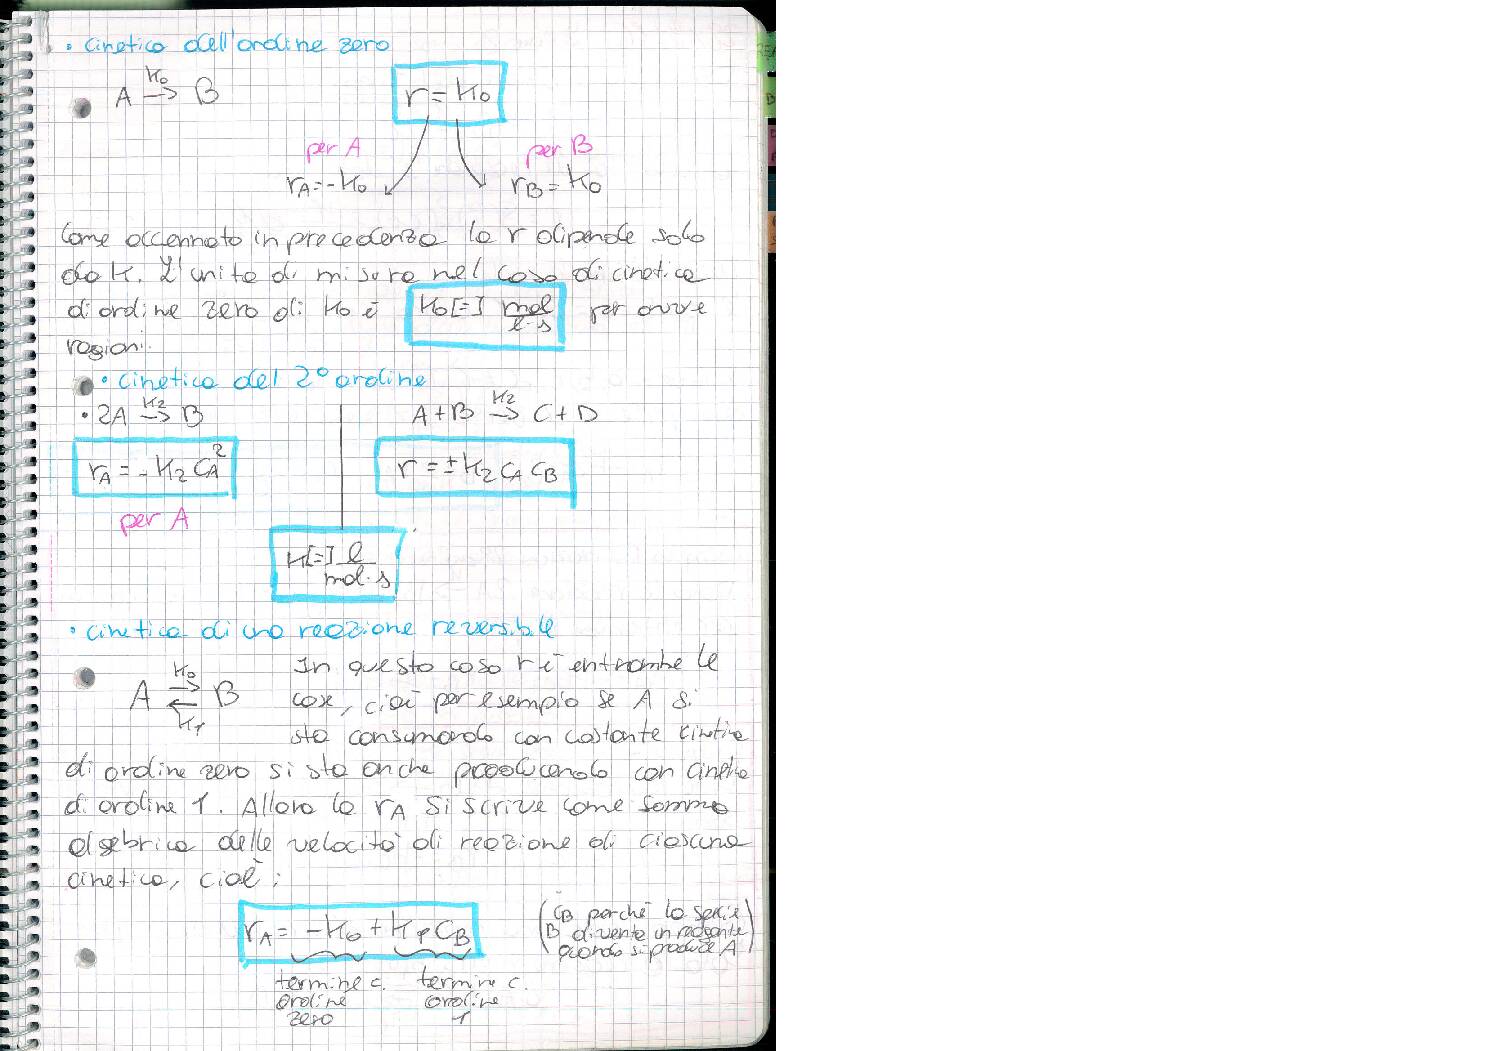 • cinetica dell'ordine zero
A →(K₀) B
r = K₀
per A
per B
r_A = -K₀
r_B = K₀
Come accennato in precedenza la r dipende solo
da K. L'unità di misura nel caso di cinetica
di ordine zero di K₀ è K₀ [=] mol/(l·s) per ovvie
ragioni.
• cinetica del 2° ordine
• 2A →(K₂) B
A + B →(K₂) C + D
r_A = -K₂ C_A²
r = ± K₂ C_A C_B
per A
K [=] l/(mol·s)
• cinetica di una reazione reversibile
A ⇄(K₀, K₁) B
In questo caso r è entrambe le
cose, cioè per esempio se A si
sta consumando con costante cinetica
di ordine zero si sta anche producendo con cinetica
di ordine 1. Allora la r_A si scrive come somma
algebrica delle velocità di reazione di ciascuna
cinetica, cioè:
r_A = -K₀ + K₁ C_B
(C_B perchè la specie
B diventa un reagente
quando si produce A)
termine c. ordine zero
termine c. ordine 1